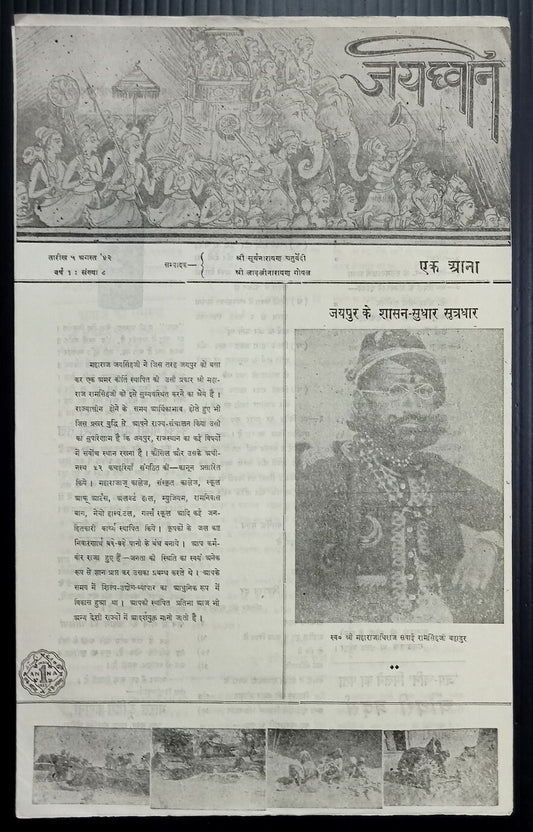 जयध्वनि
तारीख ५ अगस्त '४२
वर्ष १ : संख्या ८
सम्पादक
श्री सूर्यनारायण चतुर्वेदी
श्री लादलीनारायण गोयल
एक आना
जयपुर के शासन-सुधार सूत्रधार
महाराज जयसिंहजी ने जिस तरह जयपुर को बसा
कर एक अमर कीर्ति स्थापित की उसी प्रकार श्री महा-
राज रामसिंहजी को इसे सुव्यवस्थित करने का श्रेय है ।
राज्यासीन होने के समय आर्थिकाभाव होते हुए भी
जिस प्रखर बुद्धि से आपने राज्य-संचालन किया उसी
का सुपरिणाम है कि जयपुर, राजस्थान का कई विषयों
में सर्वोच्च स्थान रखना है । कौंसिल और उसके अधी-
नस्थ ४२ कचहरियाँ संगठित की—कानून प्रसारित
किये । महाराजाज् कालेज, संस्कृत कालेज, स्कूल
आफ् आर्टस, अलबर्ट हाल, म्यूजियम, रामनिवास
बाग, मेयो हास्पिटल, गर्ल्स स्कूल आदि कई जन-
हितकारी कार्य स्थापित किये । कृषकों के जल कष्ट
निवारणार्थ बड़े-बड़े पानी के बंध बनाये । आप कर्म-
वीर राजा हुए हैं—जनता की स्थिति का स्वयं अनेक
रूप से ज्ञान प्राप्त कर उसका प्रबन्ध करते थे । आपके
समय में शिल्प-उद्योग-व्यापार का आधुनिक रूप में
विकास हुआ था । आपकी स्थापित प्रतिभा आज भी
अन्य देशी राज्यों में आदर्शयुक्त मानी जाती है ।
स्व० श्री महाराजाधिराज सवाई रामसिंहजी बहादुर
1
ANNA